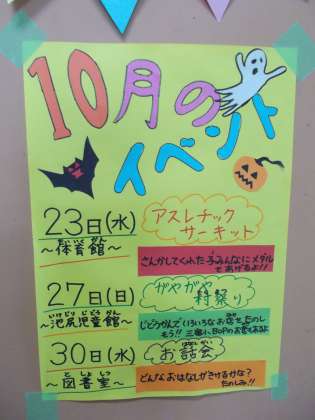 10月の
イベント
23日(水)
アスレチック
サーキット
～体育館～
さんかしてくれた子みんなにメダル
をあげるよ!!
27日(日)
がやがや
～池尻児童館～
いけじりじどうかん
じどうかんでいろいろなお店をたのし
もう!! 三宿小BOPのお店もあるよ
30日(水)
お話会
～図書室～
としょしつ
どんなおはなしがきけるかな?
たのしみ!!